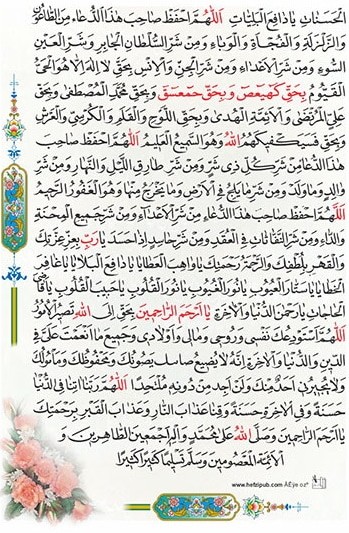 الحَسَناتِ يا دافِعَ البَلِيّاتِ اَللّٰهُمَّ احْفَظْ صاحِبَ هٰذَا الدُّعاءِ مِنَ الطّاعُونِ
وَالزَّلْزَلَةِ وَالفُجْأَةِ وَالوَباءِ وَمِنْ شَرِّ السُّلْطانِ الجابِرِ وَشَرِّ العَيْنِ
السُّوءِ وَمِنْ شَرِّ الاَعْداءِ وَمِنْ شَرِّ الجِنِّ وَالاِنْسِ بِحَقِّ لا اِلٰهَ اِلّا هُوَ الحَيُّ
القَيُّومُ بِحَقِّ كٓهٰيٰعٓصٓ وَبِحَقِّ حٰمٓعٓسٓقٓ وَبِحَقِّ مُحَمَّدٍ المُصْطَفىٰ وَبِحَقِّ
عَلِيٍّ المُرْتَضىٰ وَالاَئِمَّةِ الهُدىٰ وَبِحَقِّ اللَّوْحِ وَالقَلَمِ وَالكُرْسِيِّ وَالعَرْشِ
وَبِحَقِّ فَسَيَكْفِيكَهُمُ اللّٰهُ وَهُوَ السَّمِيعُ العَلِيمُ اَللّٰهُمَّ احْفَظْ صاحِبَ
هٰذَا الدُّعاءِ مِنْ شَرِّ كُلِّ ذِي شَرٍّ وَمِنْ شَرِّ طارِقِ اللَّيْلِ وَالنَّهارِ وَمِنْ شَرِّ
والِدٍ وَما وَلَدَ وَمِنْ شَرِّ ما يَلِجُ فِي الاَرْضِ وَما يَخْرُجُ مِنْها وَهُوَ الغَفُورُ الرَّحِيمُ
اَللّٰهُمَّ احْفَظْ صاحِبَ هٰذَا الدُّعاءِ مِنْ شَرِّ الاَعْداءِ وَمِنْ شَرِّ جَمِيعِ المِحْنَةِ
وَالدّاءِ وَمِنْ شَرِّ النَّفّاثاتِ فِي العُقَدِ وَمِنْ شَرِّ حاسِدٍ اِذا حَسَدَ يا رَبِّ بِعِزِّ عِزَّتِكَ
وَالقَهْرِ بِلُطْفِكَ وَالرَّحْمَةِ بِرَحْمَتِكَ يا واهِبَ العَطايا يا دافِعَ البَلايا يا غافِرَ
الخَطايا يا سَتّارَ العُيُوبِ يا نُورَ القُلُوبِ يا حَبِيبَ القُلُوبِ يا قاضِيَ
الحاجاتِ يا رَحْمٰنَ الدُّنْيا وَالآخِرَةِ يا اَرْحَمَ الرّاحِمِينَ بِحَقِّ اِلَى اللّٰهِ تَصِيرُ الاُمُورُ
اَللّٰهُمَّ اَسْتَوْدِعُكَ نَفْسِي وَرُوحِي وَمالِي وَاَوْلادِي وَجَمِيعَ ما اَنْعَمْتَ عَلَيَّ فِي
الدِّينِ وَالدُّنْيا وَالآخِرَةِ اِنَّهُ لا يُضِيعُ صَنائِعُكَ وَمَحْفُوظُكَ وَمَأْمُولُكَ
وَلا يُجِيرُنِي اَحَدٌ مِنْكَ وَلَنْ اَجِدَ مِنْ دُونِهِ مُلْتَحَدًا اَللّٰهُمَّ رَبَّنا اٰتِنا فِي الدُّنْيا
حَسَنَةً وَفِي الآخِرَةِ حَسَنَةً وَقِنا عَذابَ النّارِ وَعَذابَ القَبْرِ بِرَحْمَتِكَ
يا اَرْحَمَ الرّاحِمِينَ وَصَلَّى اللّٰهُ عَلىٰ مُحَمَّدٍ وَآلِهِ اَجْمَعِينَ الطّاهِرِينَ وَ
الاَئِمَّةِ المَعْصُومِينَ وَسَلَّمَ تَسْلِيمًا كَثِيرًا كَثِيرًا
www.hefzipub.com